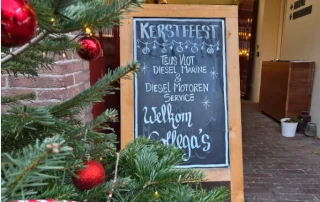 KERSTFEEST
TEUS VLOT
DIESEL MARINE
&
DIESEL MOTOREN
SERVICE
Welkom
Collega's